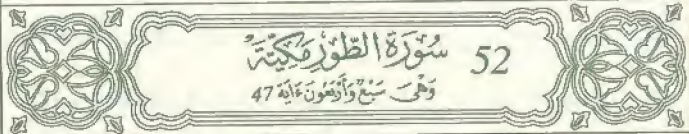 52 سُورَةُ الطُّورِ مَكِّيَّةٌ
وَهْىَ سَبْعٌ وَأَرْبَعُونَ ءَايَةً 47